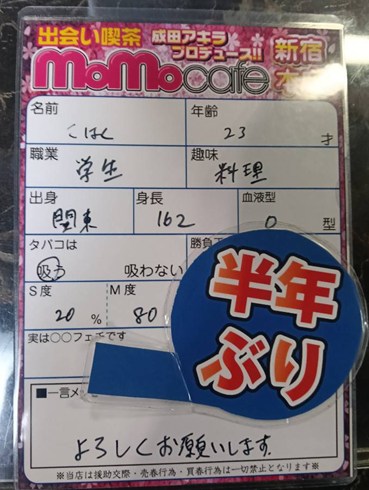 出会い喫茶 成田アキラ
プロデュース!! 新宿
MoMocafe
名前 年齢
こはく 23 才
職業 趣味
学生 料理
出身 身長 血液型
関東 162 O 型
タバコは
吸う 吸わない
S度 M度
20 % 80
実は〇〇フェチです
半年
ぶり
■一言メ
よろしくお願いします
※当店は援助交際・売春行為・買春行為は一切禁止となります※